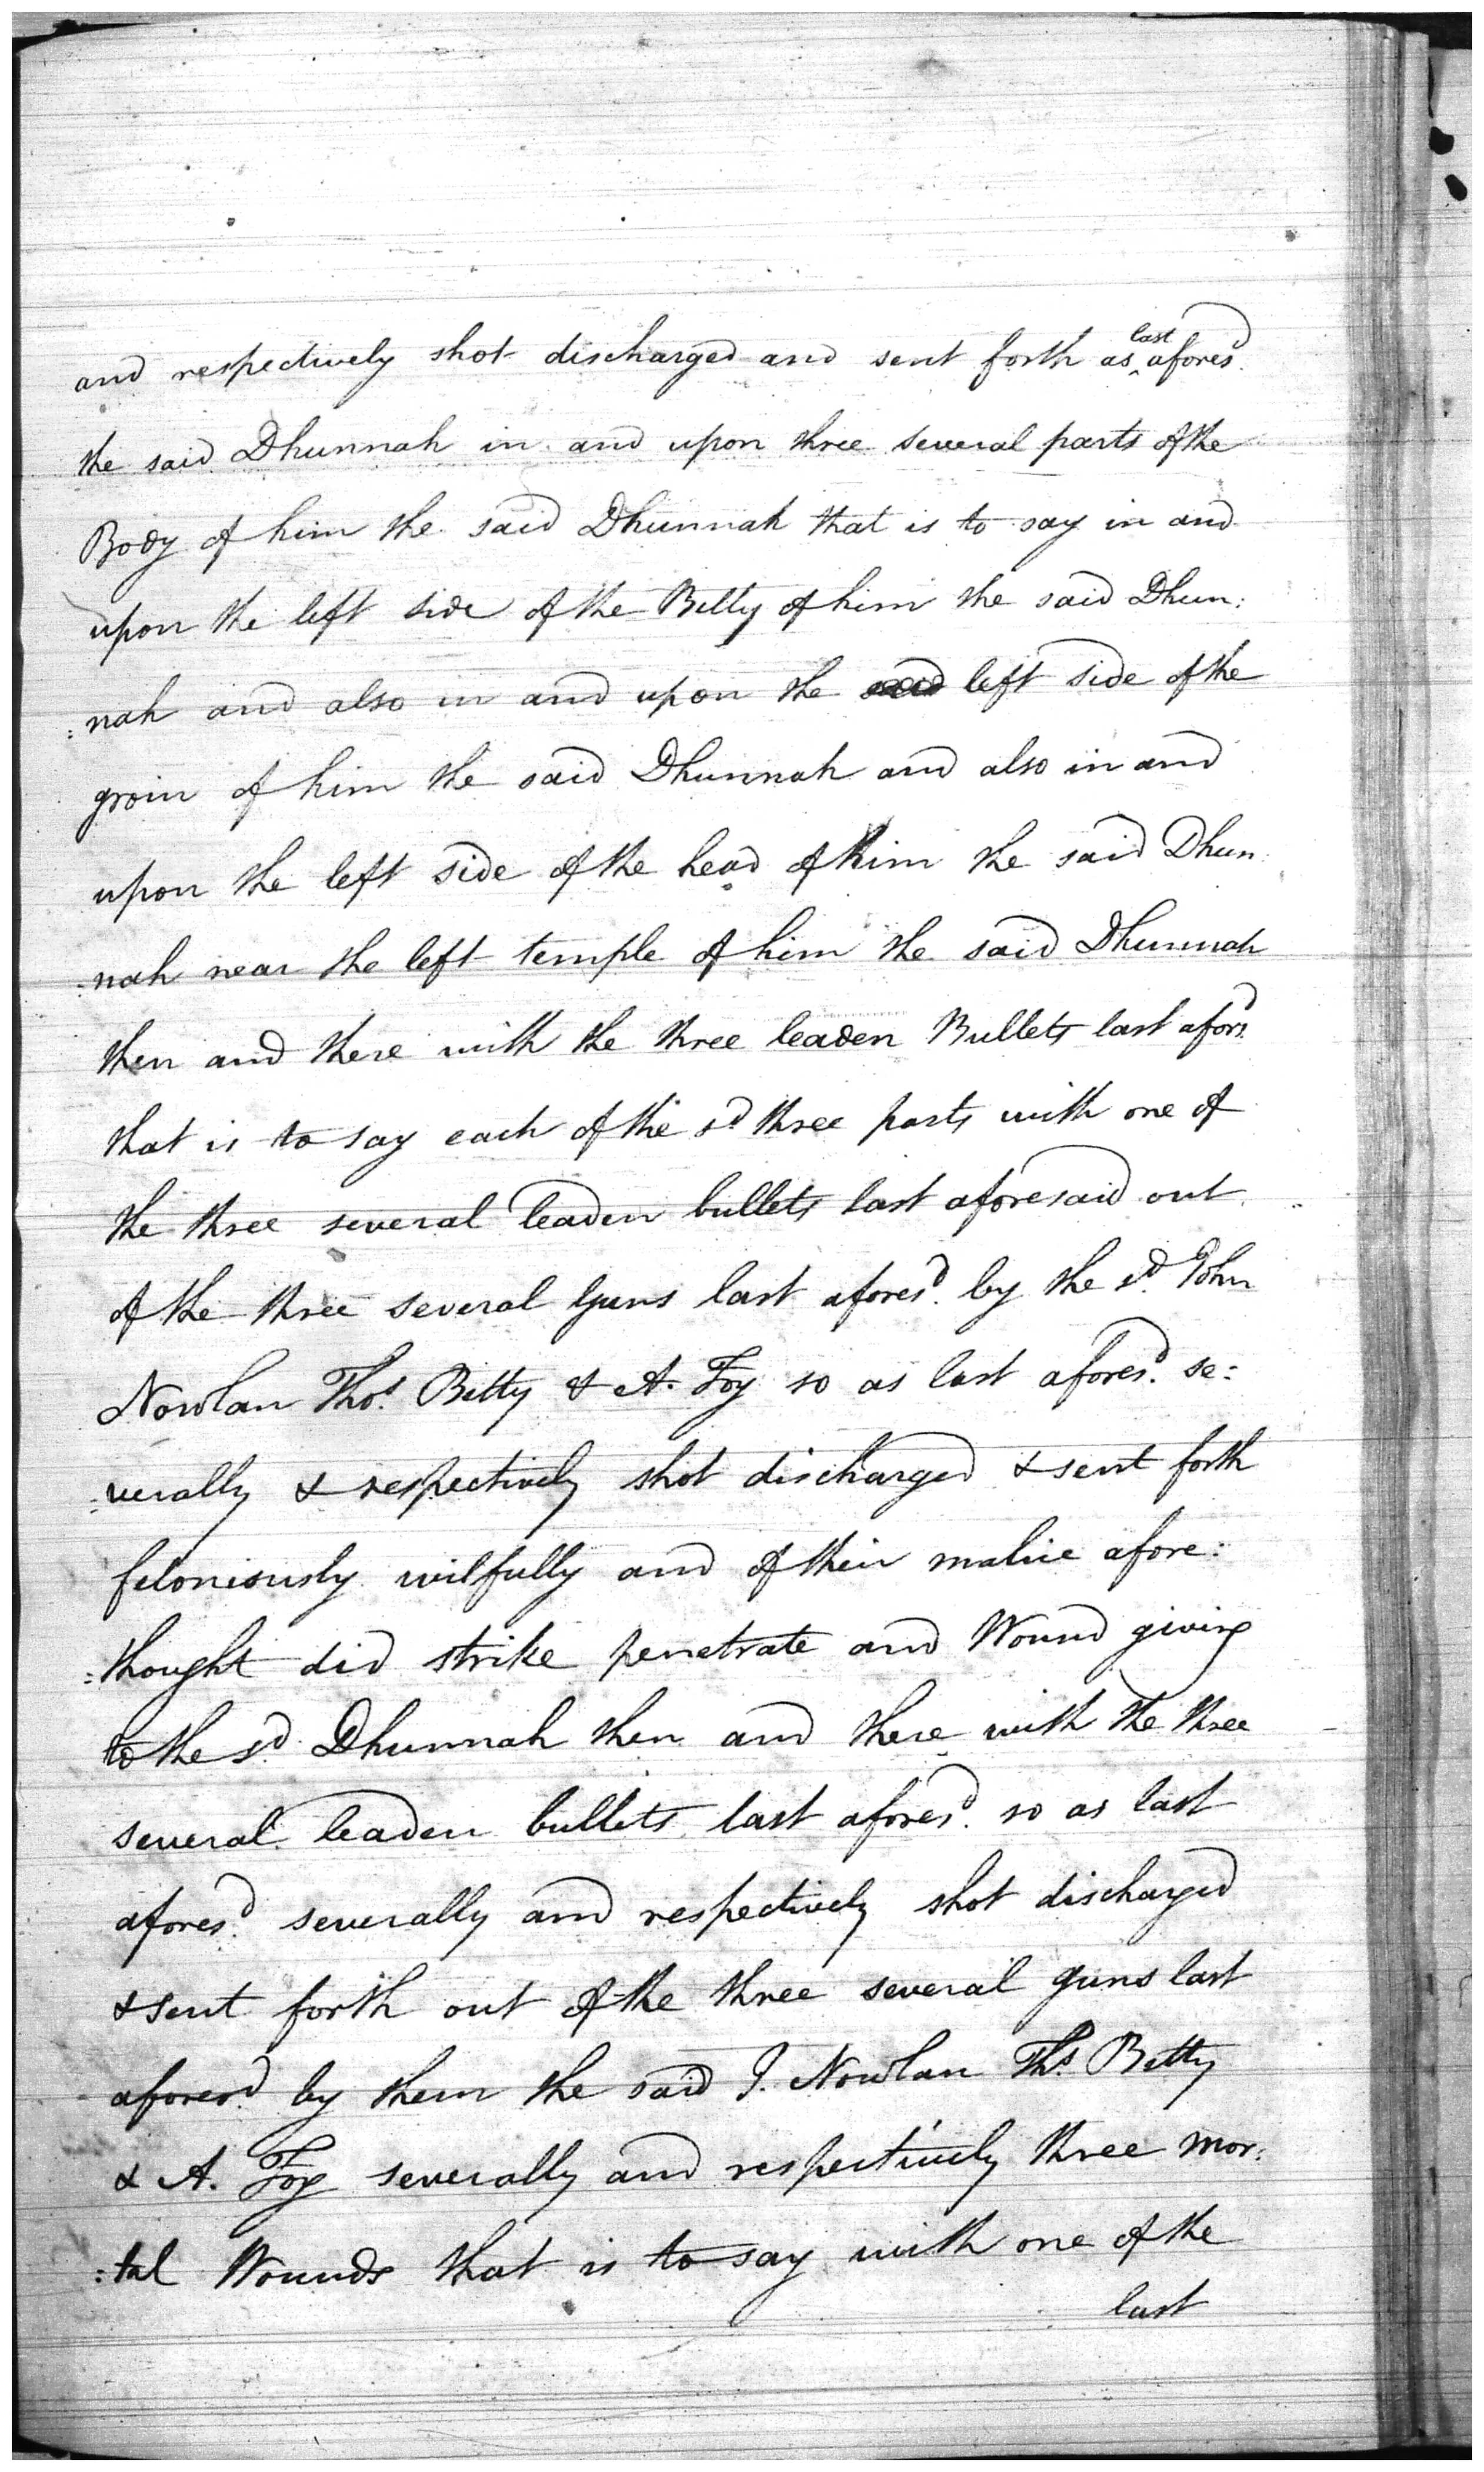 and respectively shot discharged and sent forth as ^last afores^d.
the said Dhunnah in and upon three several parts of the
Body of him the said Dhunnah that is to say in and
upon the left side of the Belly of him the said Dhun:
:nah and also in and upon the said left side of the
groin of him the said Dhunnah and also in and
upon the left side of the head of him the said Dhun:
:nah near the left temple of him the said Dhunnah
then and there with the three leaden Bullets last afors^d.
that is to say each of the s^d three parts with one of
the three several leaden bullets last aforesaid out
of the three several Guns last afores^d. by the s^d. John
Nowlan Tho^s. Betty & A. Foy so as last afores^d. se:
:verally & respectively shot discharged & sent forth
feloniously wilfully and of their malice afore:
:thought did strike penetrate and Wound giving
to the s^d. Dhunnah then and there with the three
several leaden bullets last afores^d. so as last
afores^d. severally and respectively shot discharged
& sent forth out of the three several guns last
afores^d. by them the said J. Nowlan Th^s. Betty
& A. Foy severally and respectively three mor:
:tal Wounds that is to say with one of the
last